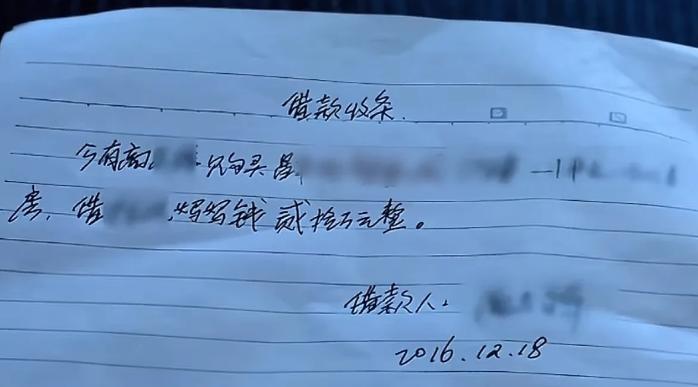 借款收条.
今有高 购买昌 一1
房,借 妈妈钱贰拾万元整。
借款人:
2016.12.18